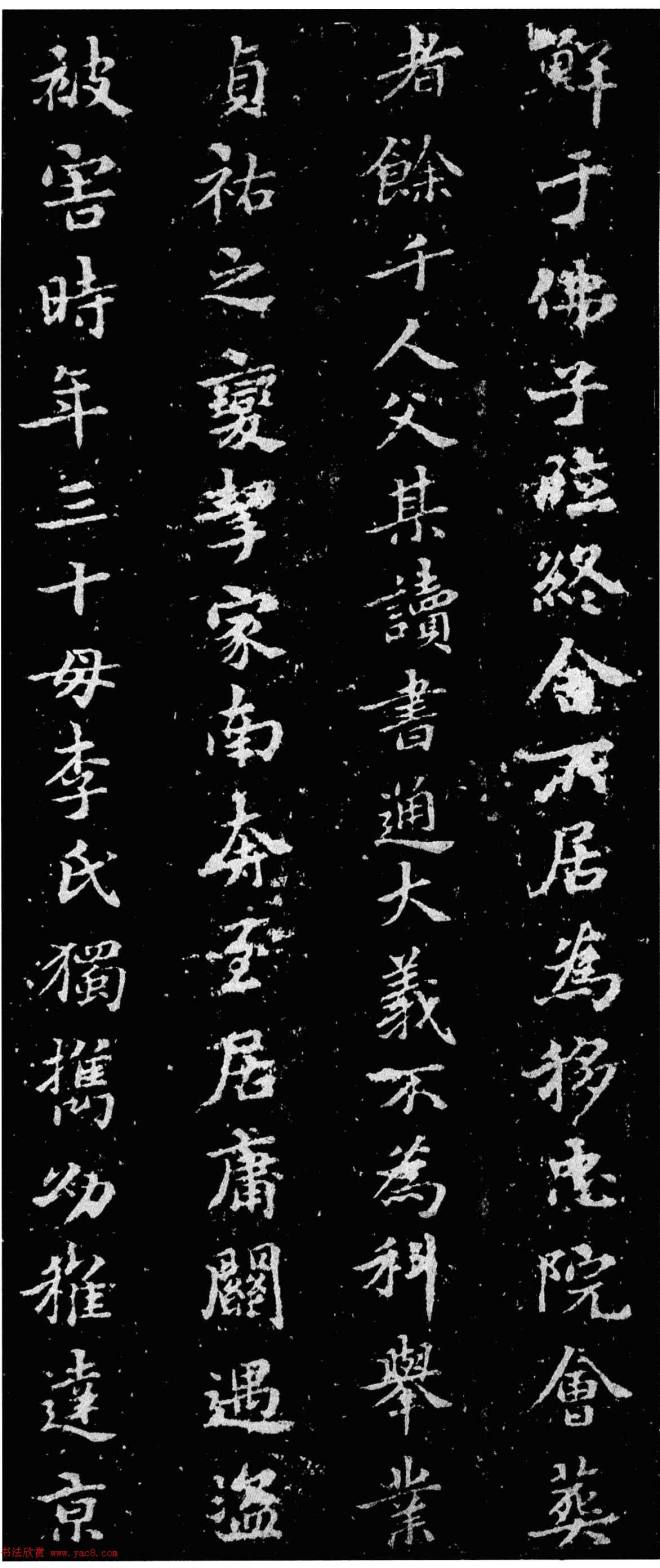 鮮于佛子臨終舍所居為移忠院會葬
者餘千人父某讀書通大義不為科舉業
貞祐之變挈家南奔至居庸關遇盜
被害時年三十母李氏獨攜幼稚達京
书法欣赏 www.yac8.com